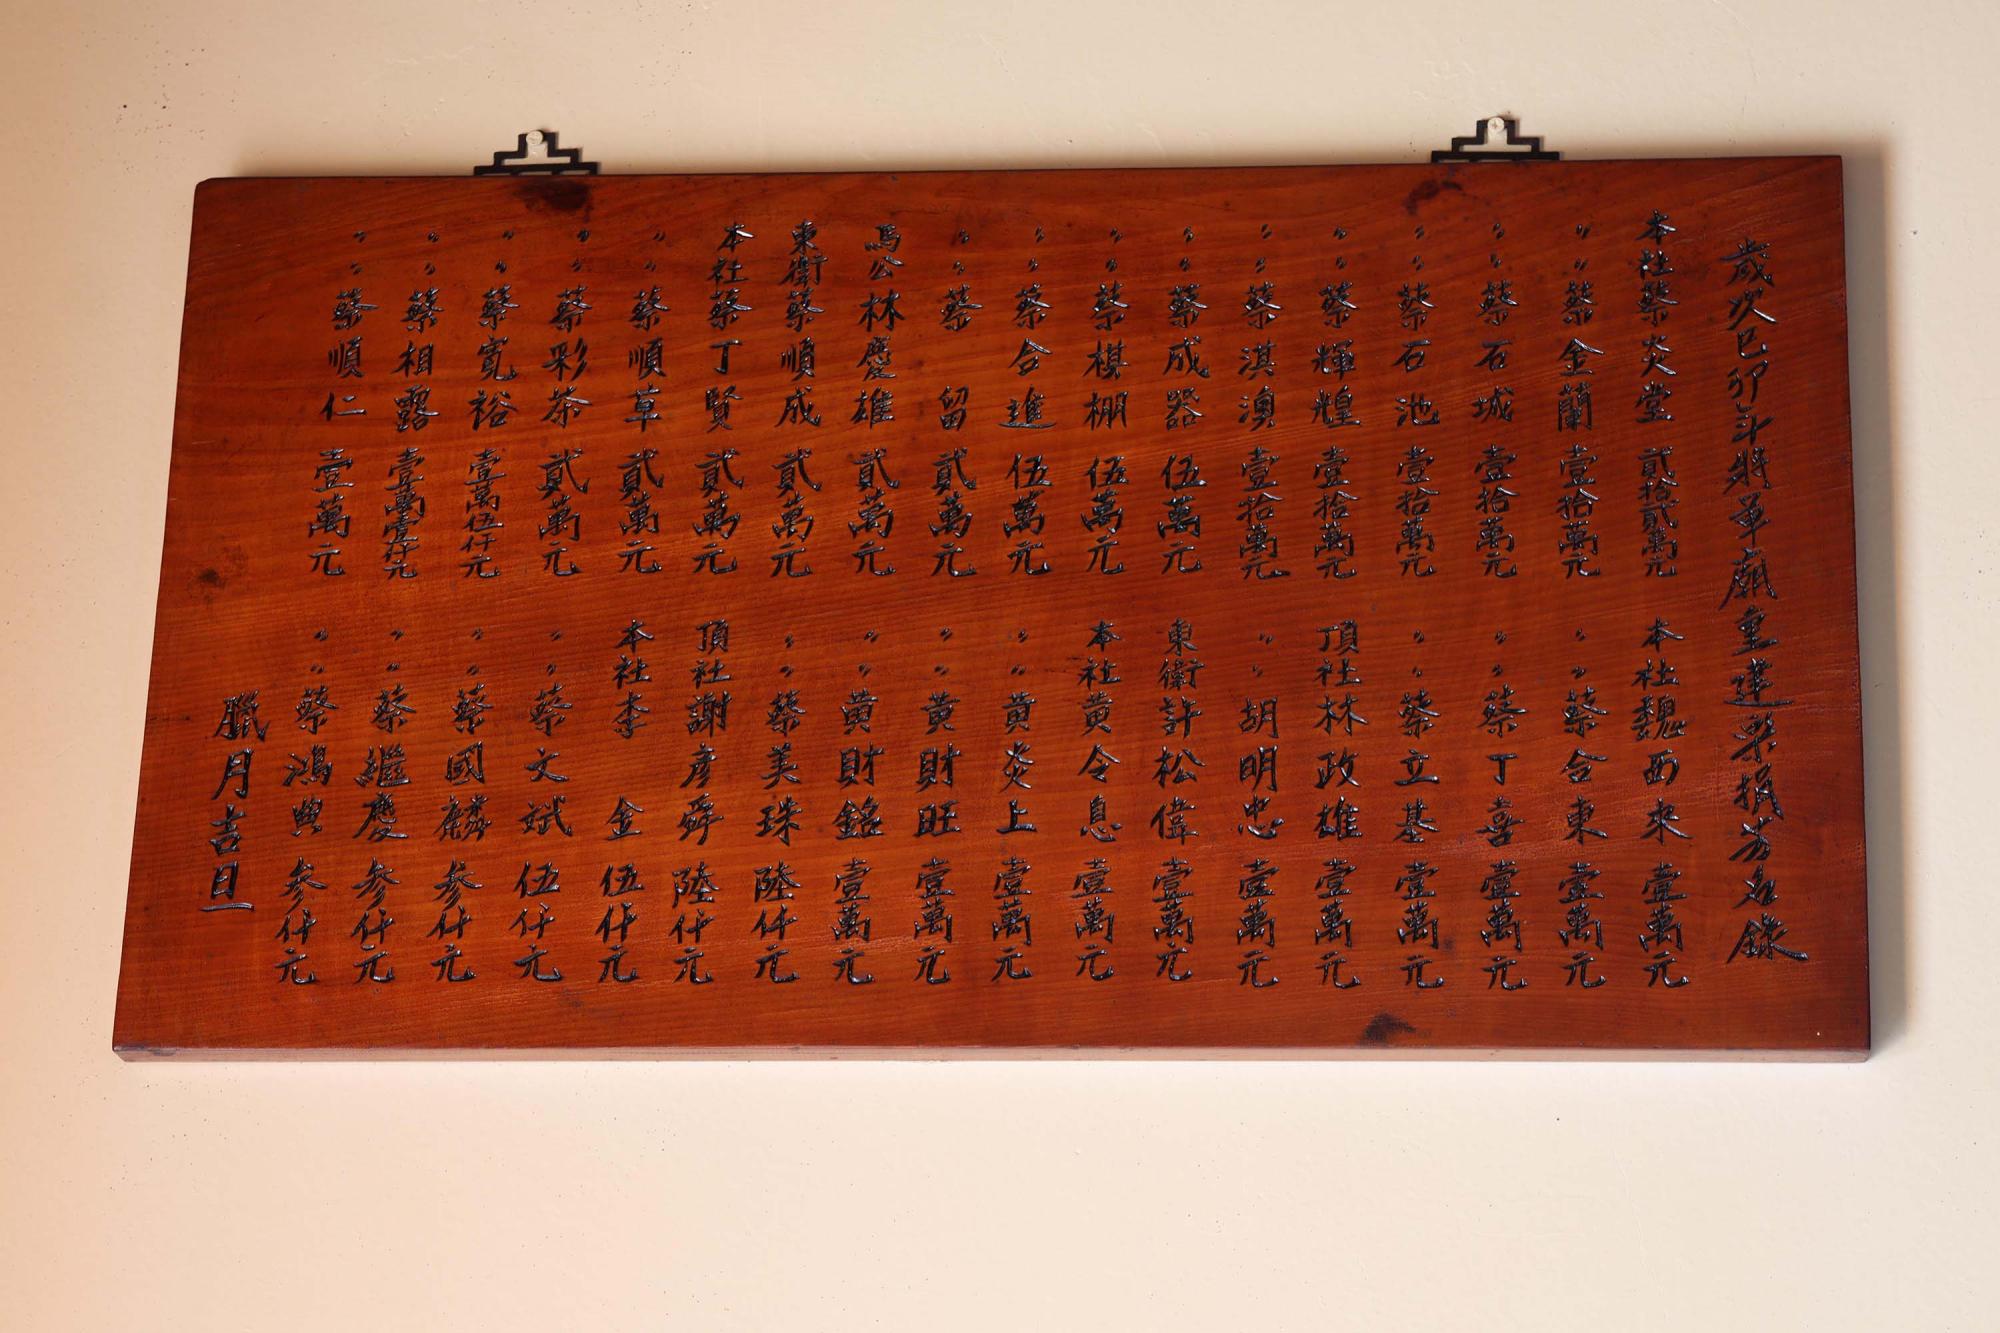 歲次己卯年將軍廟重建樂捐芳名錄
本社蔡炎堂貳拾貳萬元
〃〃蔡金蘭壹拾萬元
〃〃蔡石城壹拾萬元
〃〃蔡石池壹拾萬元
〃〃蔡輝煌壹拾萬元
〃〃蔡淇澳壹拾萬元
〃〃蔡成器伍萬元
〃〃蔡棋棚伍萬元
〃〃蔡合進伍萬元
〃〃蔡留貳萬元
馬公林慶雄貳萬元
東衛蔡順成貳萬元
本社蔡丁賢貳萬元
〃〃蔡順草貳萬元
〃〃蔡彩茶貳萬元
〃〃蔡寬裕壹萬伍仟元
〃〃蔡相露壹萬壹仟元
〃〃蔡順仁壹萬元
本社魏西來壹萬元
〃〃蔡合東壹萬元
〃〃蔡丁喜壹萬元
〃〃蔡立基壹萬元
頂社林政雄壹萬元
〃〃胡明忠壹萬元
東衛許松偉壹萬元
本社黃令息壹萬元
〃〃黃炎上壹萬元
〃〃黃財旺壹萬元
〃〃黃財銘壹萬元
〃〃蔡美珠陸仟元
頂社謝彥舜陸仟元
本社李金伍仟元
〃〃蔡文斌伍仟元
〃〃蔡國麟參仟元
〃〃蔡繼慶參仟元
〃〃蔡鴻興參仟元
臘月吉旦